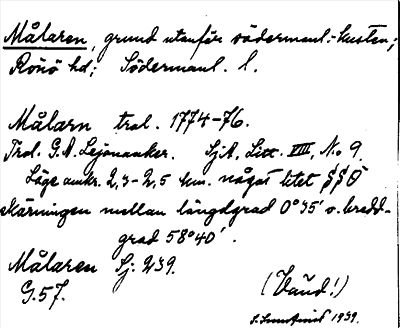 Målaren, grund utanför södermanl.-kusten;
Rönö hd; Södermanl. l.
Målarn trol. 1774-76.
Trol. G.A. Lejonanker. SjA, Litt. VIII, No 9.
Läge omkr. 2,3-2,5 km. något litet SSO
skärningen mellan längdgrad 0°35' o. bredd-
grad 58°40'.
Målaren Sj. 239.
G.57.
(Vånd!)
1939.